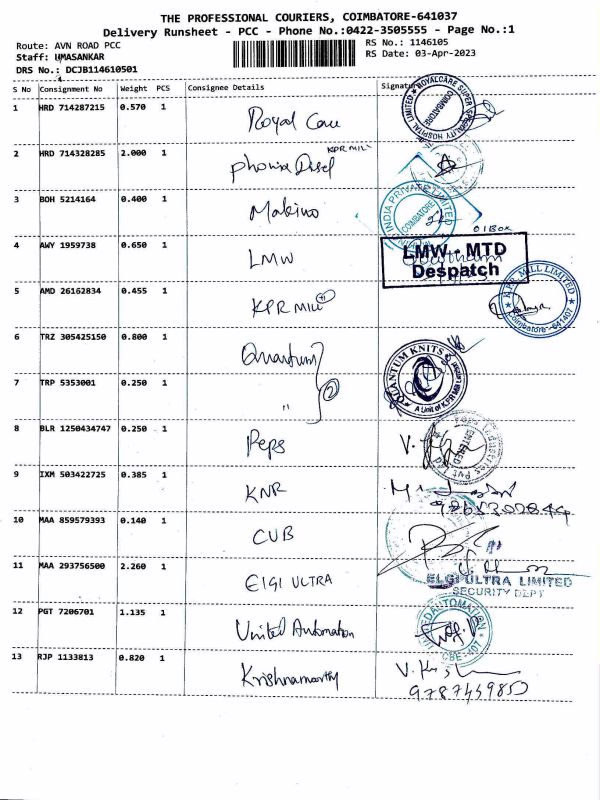 THE PROFESSIONAL COURIERS, COIMBATORE-641037
Delivery Runsheet - PCC - Phone No.:0422-3505555 - Page No.:1
Route: AVN ROAD PCC RS No.: 1146105
Staff: UMASANKAR RS Date: 03-Apr-2023
DRS No.: DCJB114610501
S No Consignment No Weight PCS Consignee Details Signature
1 HRD 714287215 0.570 1 Royal Care
ROYALCARE SUPER SPECIALITY HOSPITAL LIMITED COIMBATORE
2 HRD 714328285 2.000 1 KPR MILL
3 BOH 5214164 0.400 1 Makino
INDIA PRIVATE LIMITED COIMBATORE
01 Box
4 AWY 1959738 0.650 1 LMW
LMW - MTD
Despatch
5 AMD 26162834 0.455 1 KPR Mill
K.P.R. MILL LIMITED Coimbatore - 641407
6 TRZ 305425150 0.800 1 Quantum
QUANTUM KNITS A Unit of KPR Mill
7 TRP 5353001 0.250 1 " 2
8 BLR 1250434747 0.250 1 Peps
ENTERED
9 IXM 503422725 0.385 1 KNR
10 MAA 859579393 0.140 1 CUB
11 MAA 293756500 2.260 1 ElGI ULTRA
ELGI ULTRA LIMITED
SECURITY DEPT
12 PGT 7206701 1.135 1 United Automation
AUTOMATION CBE-407
13 RJP 1133813 0.820 1 Krishnamorthy
9787459850